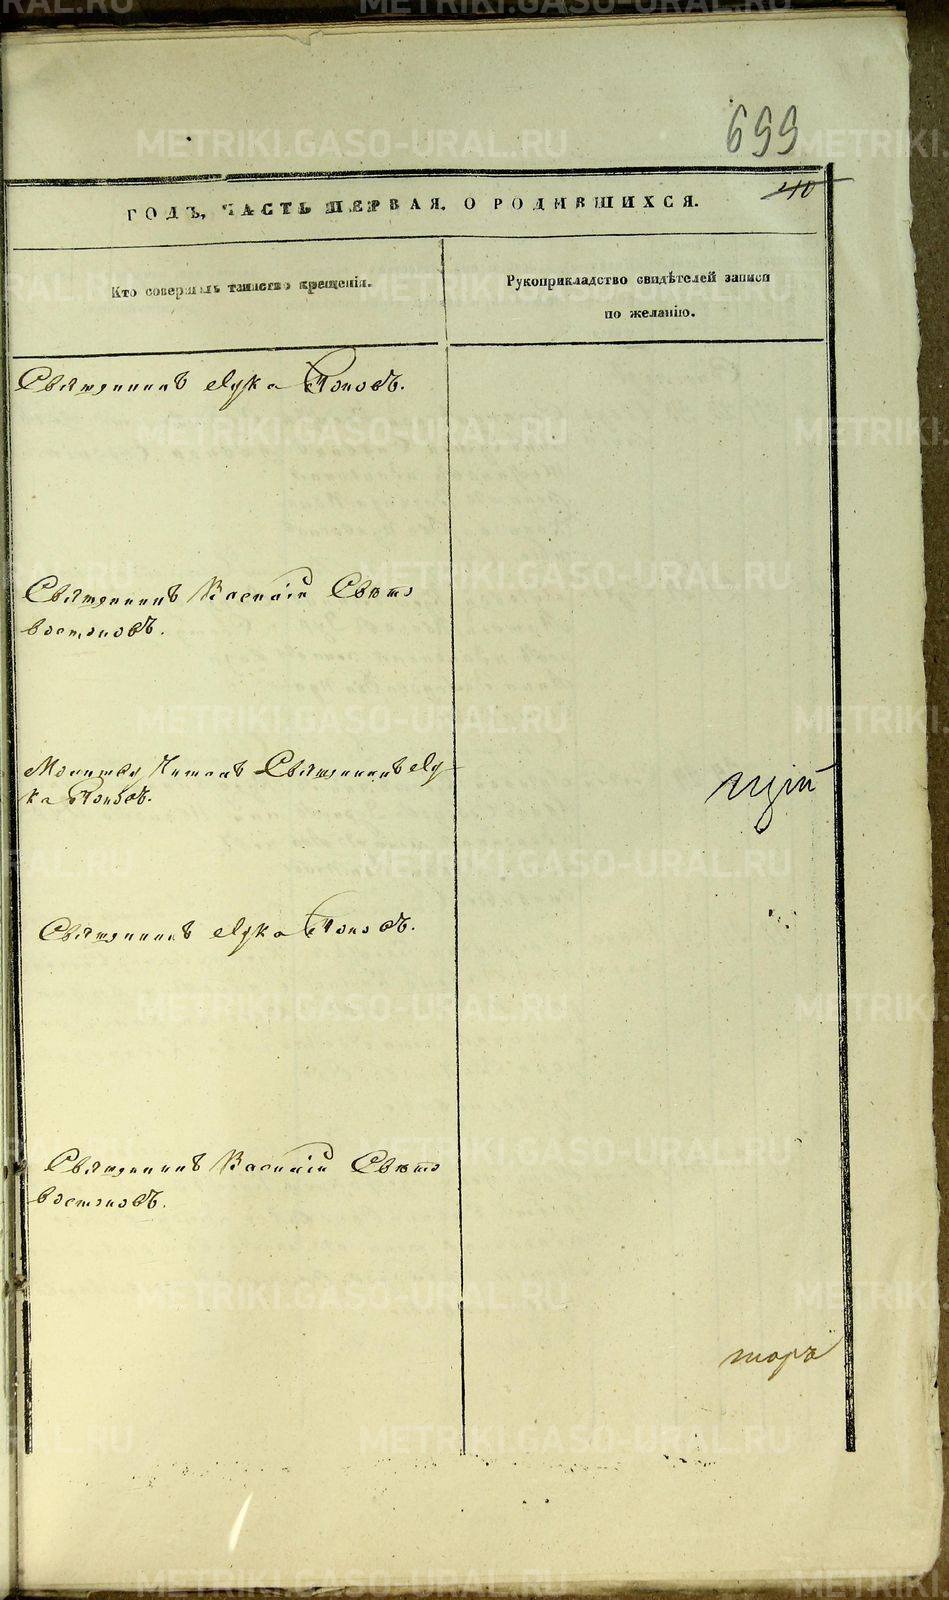 699
410
ГОДЪ, ЧАСТЬ ПЕРВАЯ. О РОДИВШИХСЯ.
Кто совершалъ таинство крещенія.
Рукоприкладство свидѣтелей записи
по желанію.
Священникъ Лука Поповъ.
Священникъ Василій Свѣто
востоковъ.
Молитву читалъ Священникъ Лу
ка Поповъ.
щій
Священникъ Лука Поповъ.
Священникъ Василій Свѣто
востоковъ.
торъ
METRIKI.GASO-URAL.RU